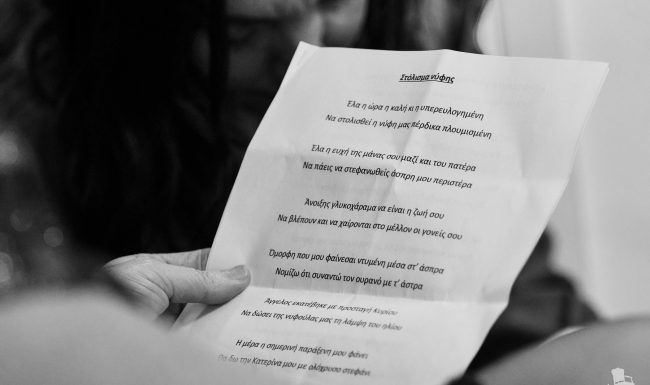 Στόλισμα νύφης
Έλα η ώρα η καλή κι η υπερευλογημένη
Να στολισθεί η νύφη μας πέρδικα πλουμισμένη
Έλα η ευχή της μάνας σου μαζί και του πατέρα
Να πάεις να στεφανωθείς άσπρη μου περιστέρα
Άνοιξης γλυκοχάραμα να είναι η ζωή σου
Να βλέπουν και να χαίρονται στο μέλλον οι γονείς σου
Όμορφη που μου φαίνεσαι ντυμένη μέσα στ' άσπρα
Νομίζω ότι συναντώ τον ουρανό με τ' άστρα
Άγγελος εκατέβηκε με προσταγή Κυρίου
Να δώσει της νυφούλας μας τη λάμψη του ηλίου
Η μέρα η σημερινή παράξενη μου φάνει
Να δω την Κατερίνα μου με ολόχρυσο στεφάνι